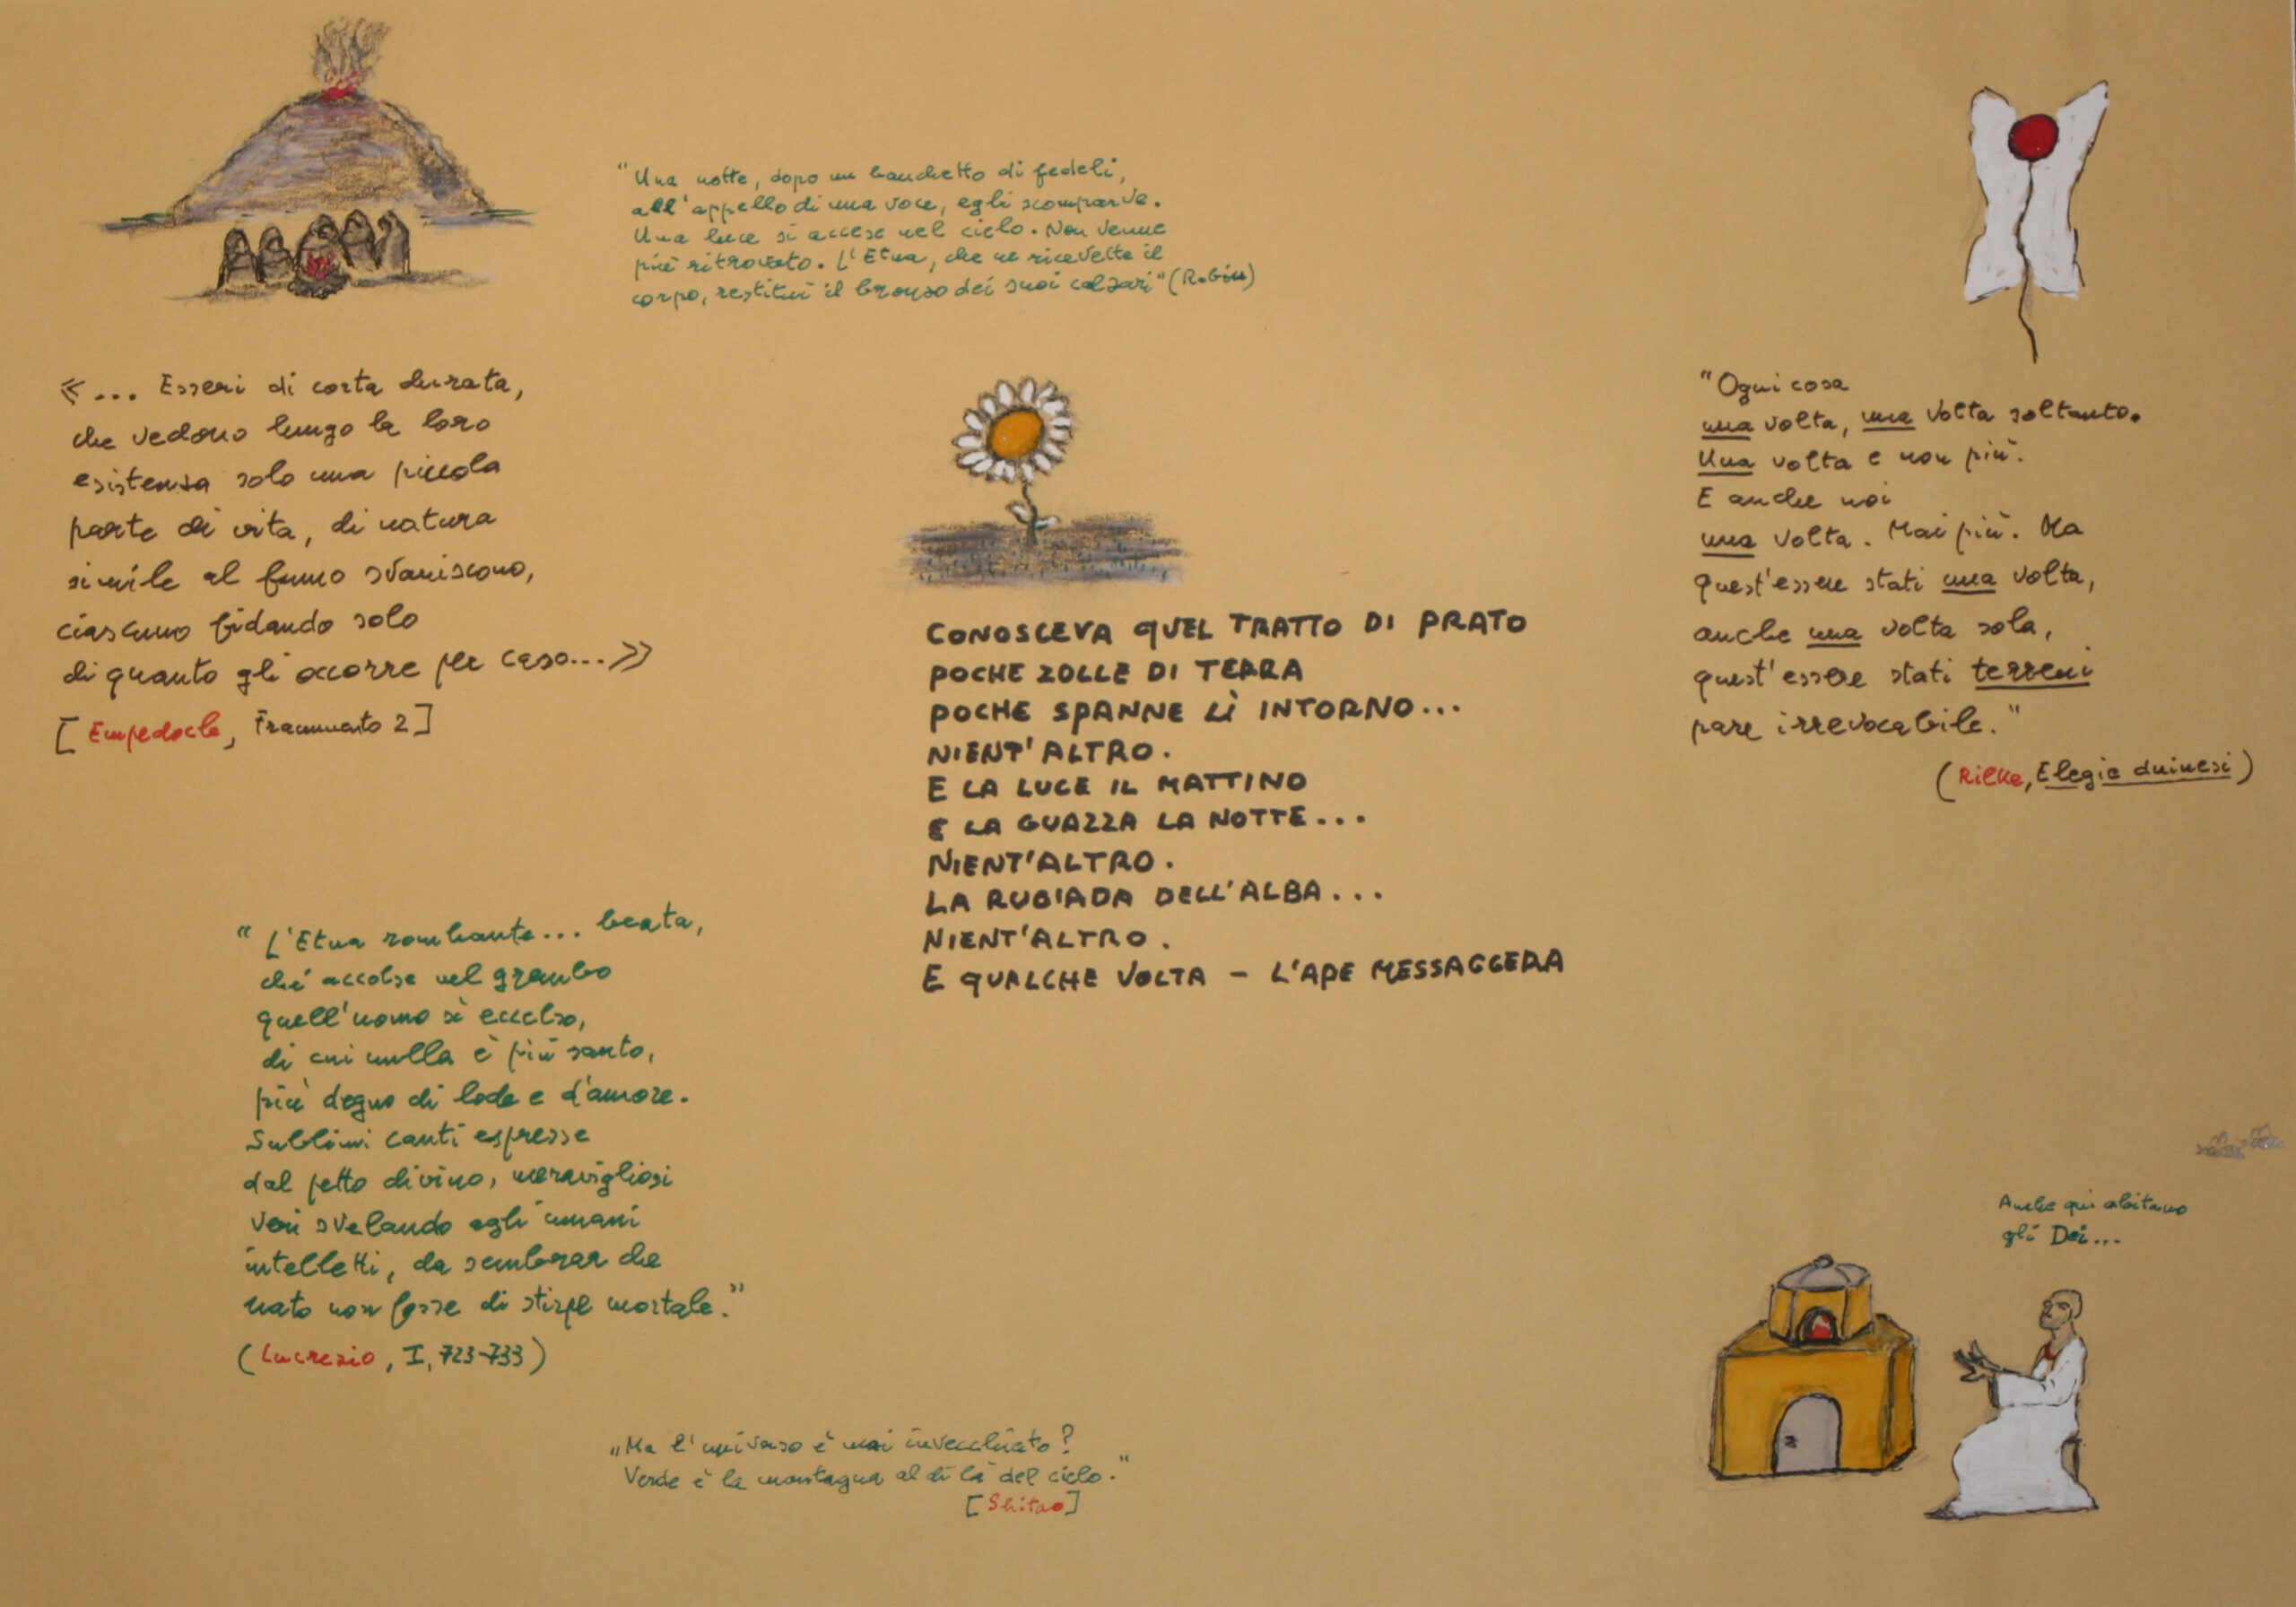 "Una notte, dopo un banchetto di fedeli,
all'appello di una voce, egli scomparve.
Una luce si accese nel cielo. Non venne
più ritrovato. L'Etna, che ne ricevette il
corpo, restituì il bronzo dei suoi calzari" (Robin)
«... Esseri di corta durata,
che vedono lungo la loro
esistenza solo una piccola
parte di vita, di natura
simile al fumo svaniscono,
ciascuno fidando solo
di quanto gli occorre per caso...»
[Empedocle, Frammento 2]
"Ogni cosa
una volta, una volta soltanto.
Una volta e non più.
E anche noi
una volta. Mai più. Ma
quest'essere stati una volta,
anche una volta sola,
quest'essere stati terreni
pare irrevocabile."
(Rilke, Elegie duinesi)
CONOSCEVA QUEL TRATTO DI PRATO
POCHE ZOLLE DI TERRA
POCHE SPANNE LÌ INTORNO...
NIENT'ALTRO.
E LA LUCE IL MATTINO
E LA GUAZZA LA NOTTE...
NIENT'ALTRO.
LA RUGIADA DELL'ALBA...
NIENT'ALTRO.
E QUALCHE VOLTA – L'APE MESSAGGERA
"L'Etna rombante... beata,
ché accolse nel grembo
quell'uomo sì eccelso,
di cui nulla è più santo,
più degno di lode e d'amore.
Sublimi canti espresse
dal petto divino, meravigliosi
veri svelando agli umani
intelletti, da sembrar che
nato non fosse di stirpe mortale."
(Lucrezio, I, 723-733)
"Ma l'universo è mai invecchiato?
Verde è la montagna al di là del cielo."
[Shitao]
Anche qui abitano
gli Dei...